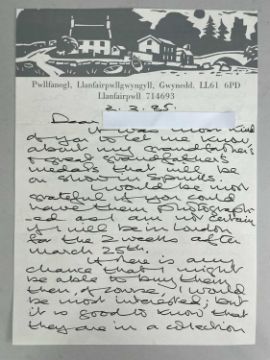 Pwllfanogl, Llanfairpwllgwyngyll, Gwynedd. LL61 6PD
Llanfairpwll 714693
2. 3. 95.
Dear
It was most kind
of you to let me know
about my grandfather's
& great grandfather's
medals that will be
on show at Spinks.
I would be most
grateful if you could
have them photograph-
ed as I am not certain
if I will be in London
for the 2 weeks after
March 25th.
If there is any
chance that I might
be able to buy them
then, of course, I would
be most interested; but
it is good to know that
they are in a collection